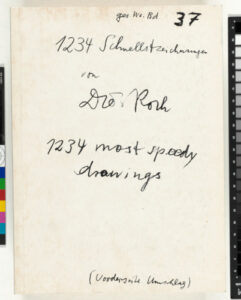 37
1234 Schnellstzeichnungen
von
Diö. Roth
1234 most speedy
drawings
(Vorderseite Umschlag)